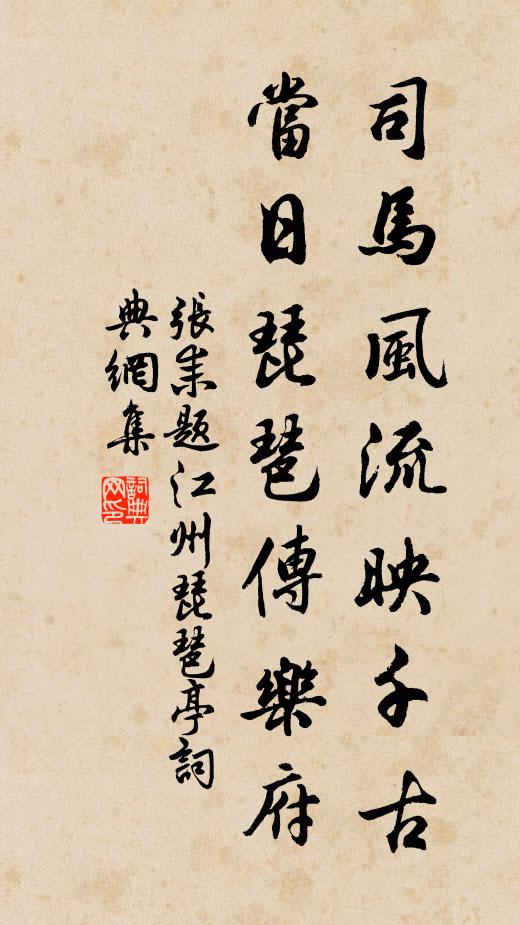 司馬風流映千古
當日琵琶傳樂府
張耒題江州琵琶亭詞
典網集
詞典網印